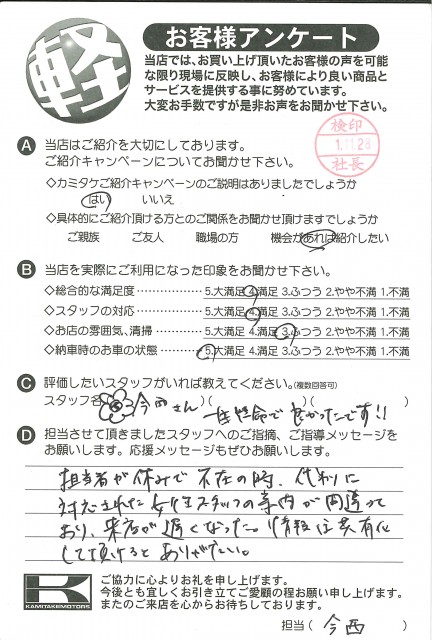 軽
お客様アンケート
当店では、お買い上げ頂いたお客様の声を可能
な限り現場に反映し、お客様により良い商品と
サービスを提供する事に努めています。
大変お手数ですが是非お声をお聞かせ下さい。
検印
1.11.28
社長
A 当店はご紹介を大切にしております。
ご紹介キャンペーンについてお聞かせ下さい。
◇カミタケご紹介キャンペーンのご説明はありましたでしょうか
はい いいえ
◇具体的にご紹介頂ける方とのご関係をお聞かせ頂けますでしょうか
ご親族 ご友人 職場の方 機会があれば紹介したい
B 当店を実際にご利用になった印象をお聞かせ下さい。
◇総合的な満足度 5.大満足 4.満足 3.ふつう 2.やや不満 1.不満
◇スタッフの対応 5.大満足 4.満足 3.ふつう 2.やや不満 1.不満
◇お店の雰囲気、清掃 5.大満足 4.満足 3.ふつう 2.やや不満 1.不満
◇納車時のお車の状態 5.大満足 4.満足 3.ふつう 2.やや不満 1.不満
C 評価したいスタッフがいれば教えてください。(複数回答可)
スタッフ名 今西さん )( 一生懸命で良かったです!! )
D 担当させて頂きましたスタッフへのご指摘、ご指導メッセージを
お願いします。応援メッセージもぜひお願いします。
担当者が休みで不在の時、代利に
対応された女性スタッフの案内が間違って
おり、来店が遅くなった。情報は共有化
して頂けるとありがたい。
K
KAMITAKEMOTORS
ご協力に心よりお礼を申し上げます。
今後とも宜しくお引き立てご愛顧の程お願い申し上げます。
またのご来店を心からお待ちしております。
担当( 今西 )